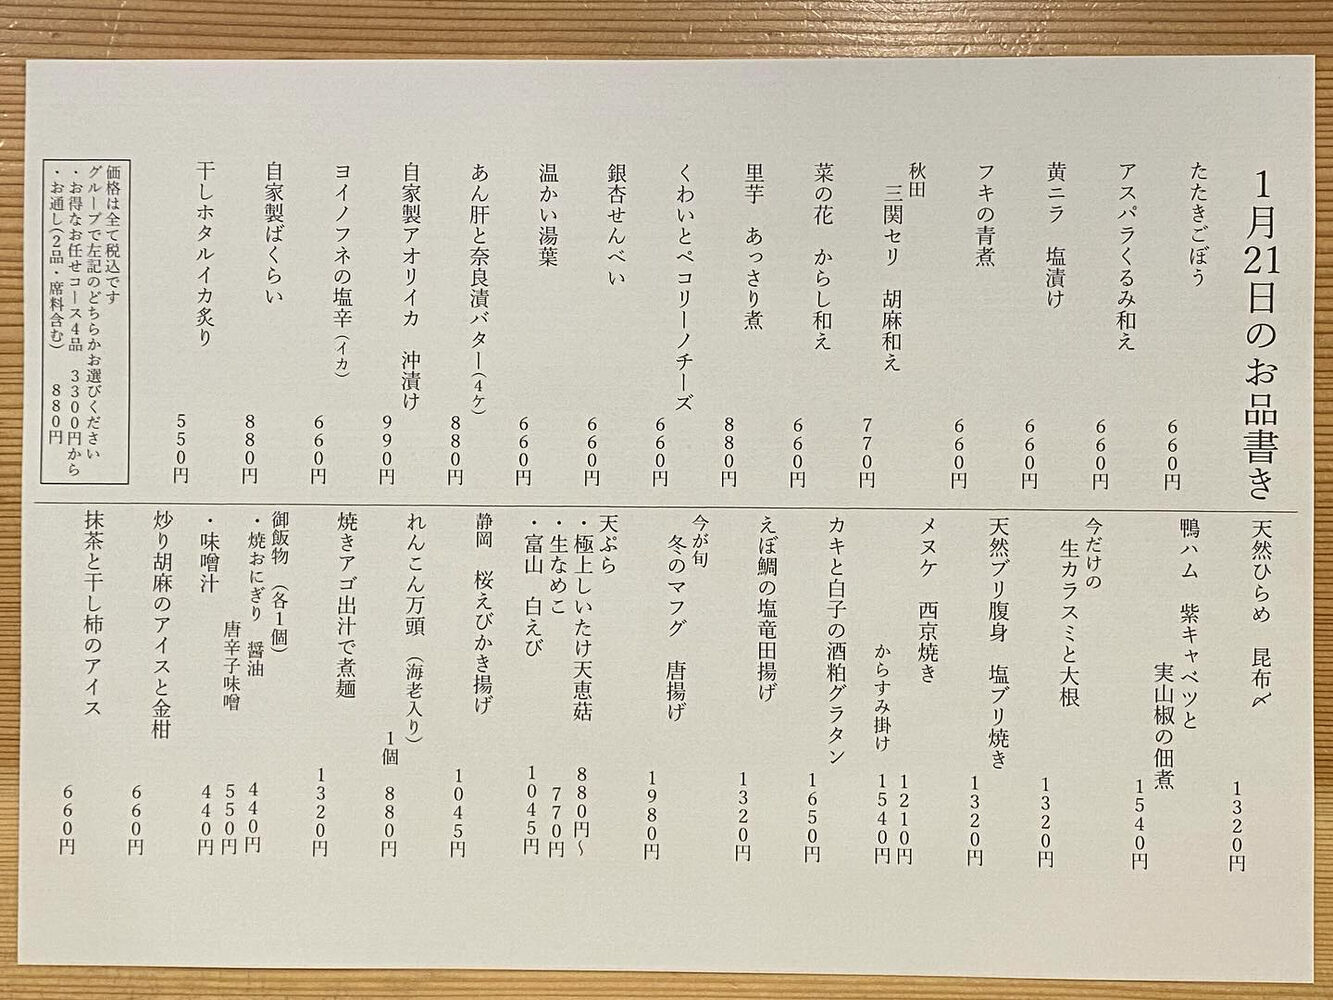 1月21日のお品書き
たたきごぼう 660円
アスパラくるみ和え 660円
黄ニラ 塩漬け 660円
フキの青煮 660円
秋田
三関セリ 胡麻和え 770円
菜の花 からし和え 660円
里芋 あっさり煮 880円
くわいとペコリーノチーズ 660円
銀杏せんべい 660円
温かい湯葉 660円
あん肝と奈良漬バター(4ケ) 880円
自家製アオリイカ 沖漬け 990円
ヨイノフネの塩辛(イカ) 660円
自家製ばくらい 880円
干しホタルイカ炙り 550円
価格は全て税込です
グループで左記のどちらかお選びください
・お得なお任せコース4品 3300円から
・お通し(2品・席料含む) 880円
天然ひらめ 昆布〆 1320円
鴨ハム 紫キャベツと
実山椒の佃煮 1540円
今だけの
生カラスミと大根 1320円
天然ブリ腹身 塩ブリ焼き 1320円
メヌケ 西京焼き 1210円
からすみ掛け 1540円
カキと白子の酒粕グラタン 1650円
えぼ鯛の塩竜田揚げ 1320円
今が旬
冬のマフグ 唐揚げ 1980円
天ぷら
・極上しいたけ天恵菇 880円~
・生なめこ 770円
・富山 白えび 1045円
静岡 桜えびかき揚げ 1045円
れんこん万頭 (海老入り)
1個 880円
焼きアゴ出汁で煮麺 1320円
御飯物 (各1個)
・焼おにぎり 醤油 440円
唐辛子味噌 550円
・味噌汁 440円
炒り胡麻のアイスと金柑 660円
抹茶と干し柿のアイス 660円